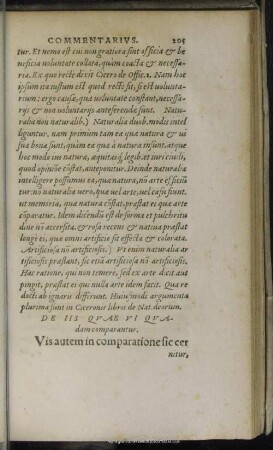 COMMENTARIVS. 205
tur. Et nemo est cui non gratiora sint officia & be
neficia voluntate collata, quàm coacta & necessa-
ria. Ex quo recte dixit Cicero de Offic. 1. Nam hoc
ipsum ita iustum est quod recte fit, si est volunta-
rium: ergo causæ, quæ voluntate constant, necessa-
rijs & non voluntarijs anteferendæ sunt. Natu-
ralia non naturalib.) Naturalia duob. modis intel
liguntur, nam primùm tam ea quæ natura & vi
sua bona sunt, quàm ea quæ à natura insunt, atque
hoc modo ius natura, æquitasq́; legib. et iuri ciuili,
quod opinióe cõstat, anteponitur. Deinde naturalia
intelligere possumus ea, quæ natura, nõ arte efficiũ
tur: nõ naturalia verò, quæ vel arte, vel casu fiunt.
ut memoria, quæ natura cõstat, præstat ei quæ arte
cõparatur. Idem dicendũ est de forma et pulchritu
dine nõ accersita, & rosa recens & natiua præstat
longè ei, quæ omni artificio sit effecta & colorata.
Artificiosa nõ artificiosis.) Vt enim naturalia ar
tificiosis præstant, sic etiã artificiosa nõ artificiosis.
Hac ratione, qui non temerè, sed ex arte dicit aut
pingit, præstat ei qui nulla arte idem facit. Qua re
docti ab ignaris differunt. Huiusmodi argumenta
plurima sunt in Ciceronis libris de Nat. deorum.
DE IIS QVAE VI QVA-
dam comparantur.
Vis autem in comparatione sic cer
nitur,